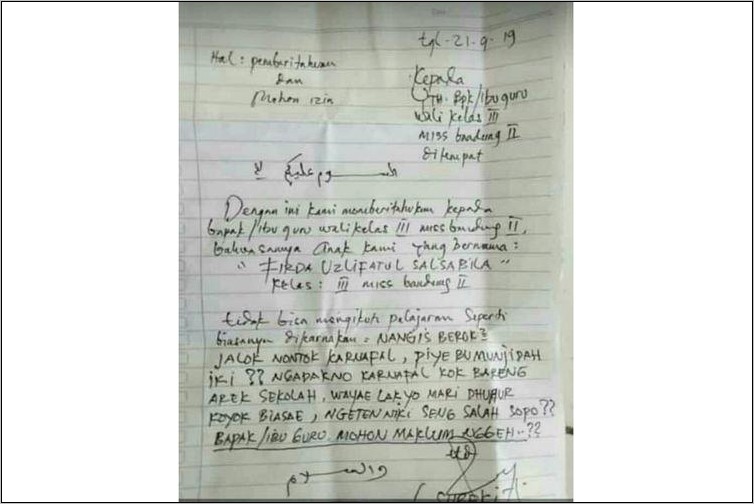 tgl-21-9-19
Hal : pemberitahuan
dan
Mohon izin
Kepada
YTH. Bpk/ibu guru
wali kelas III
MISS bandung II
ditempat
السلام عليكم
Dengan ini kami memberitahukan kepada
bapak/ibu guru wali kelas III miss bandung II,
bahwasanya anak kami yang bernama :
" FIRDA UZLIFATUL SALSABILA "
Kelas : III miss bandung II
tidak bisa mengikuti pelajaran seperti
biasanya dikarnakan = NANGIS BEROK²
JALOK NONTOK KARNAFAL, PIYE BU MUNJIDAH
IKI ?? NGADAKNO KARNAFAL KOK BARENG
AREK SEKOLAH, WAYAE LAK YO MARI DHUHUR
KOYOK BIASAE, NGETEN NIKI SENG SALAH SOPO ??
BAPAK/IBU GURU. MOHON MAKLUM NGGEH..??
والسلام
ttd